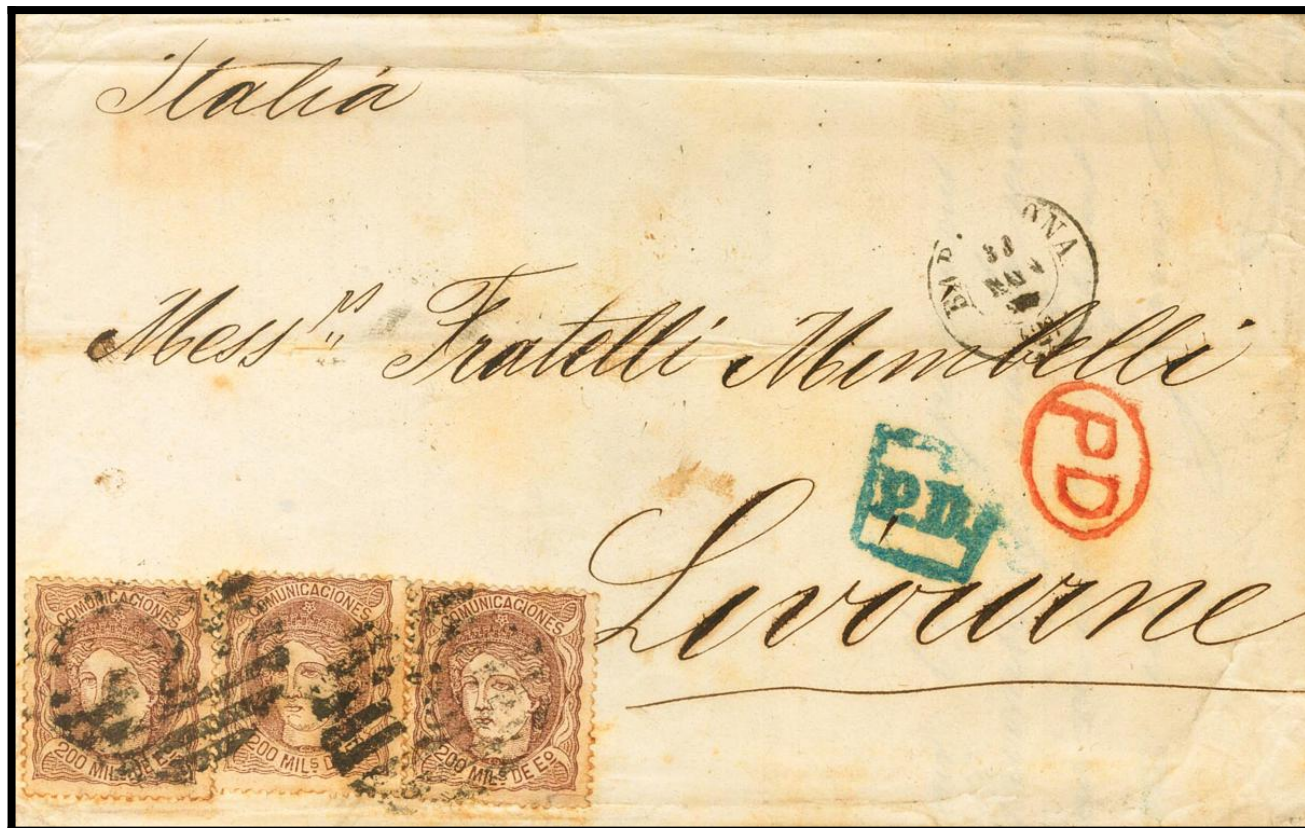 Italia
Mess.rs Fratelli Mimbelli
PD
P.D.
Livourne
COMUNICACIONES
200 MILS DE EO
COMUNICACIONES
200 MILS
COMUNICACIONES
200 MILS DE EO